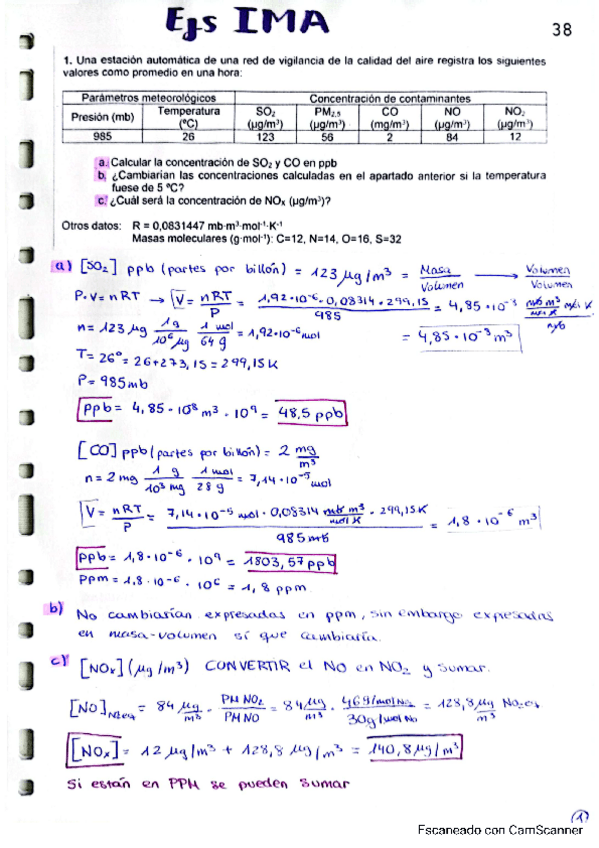 Ejs IMA
38
1. Una estación automática de una red de vigilancia de la calidad del aire registra los siguientes
valores como promedio en una hora:
Parámetros meteorológicos Concentración de contaminantes
Presión (mb) Temperatura (ºC) SO₂ (µg/m³) PM₂,₅ (µg/m³) CO (mg/m³) NO (µg/m³) NO₂ (µg/m³)
985 26 123 56 2 84 12
a. Calcular la concentración de SO₂ y CO en ppb
b. ¿Cambiarían las concentraciones calculadas en el apartado anterior si la temperatura
fuese de 5 ºC?
c. ¿Cuál será la concentración de NOx (µg/m³)?
Otros datos: R = 0,0831447 mb·m³·mol⁻¹·K⁻¹
Masas moleculares (g·mol⁻¹): C=12, N=14, O=16, S=32
a) [SO₂] ppb (partes por billón) = 123 µg/m³ = Masa/Volumen → Volumen/Volumen
P·V = nRT → V = nRT/P = 1,92·10⁻⁶ · 0,08314 · 299,15 / 985 = 4,85·10⁻³
n = 123 µg 1g/10⁶µg 1 mol/64 g = 1,92·10⁻⁶ mol = 4,85·10⁻³ m³
T = 26º = 26+273,15 = 299,15K
P = 985mb
ppb = 4,85·10⁸ m³ · 10⁹ = 48,5 ppb
[CO] ppb (partes por billón) = 2 mg/m³
n = 2 mg 1 g/10³ mg 1 mol/28 g = 7,14·10⁻⁵ mol
V = nRT/P = 7,14·10⁻⁵ mol · 0,08314 mb m³/mol K · 299,15K / 985 mb = 1,8·10⁻⁶ m³
ppb = 1,8·10⁻⁶ · 10⁹ = 1803,57 ppb
Ppm = 1,8·10⁻⁶ · 10⁶ = 1,8 ppm
b) No cambiarían expresadas en ppm, sin embargo expresadas
en masa-volumen sí que cambiaría.
c) [NOx] (µg/m³) CONVERTIR el NO en NO₂ y sumar.
[NO] = 84 µg/m³ · PM NO₂/PM NO = 84 µg/m³ · 46g/mol NO₂/30g/mol NO = 128,8 µg/m³
[NOx] = 12 µg/m³ + 128,8 µg/m³ = 140,8 µg/m³
Si están en PPM se pueden sumar
(1)
Escaneado con CamScanner